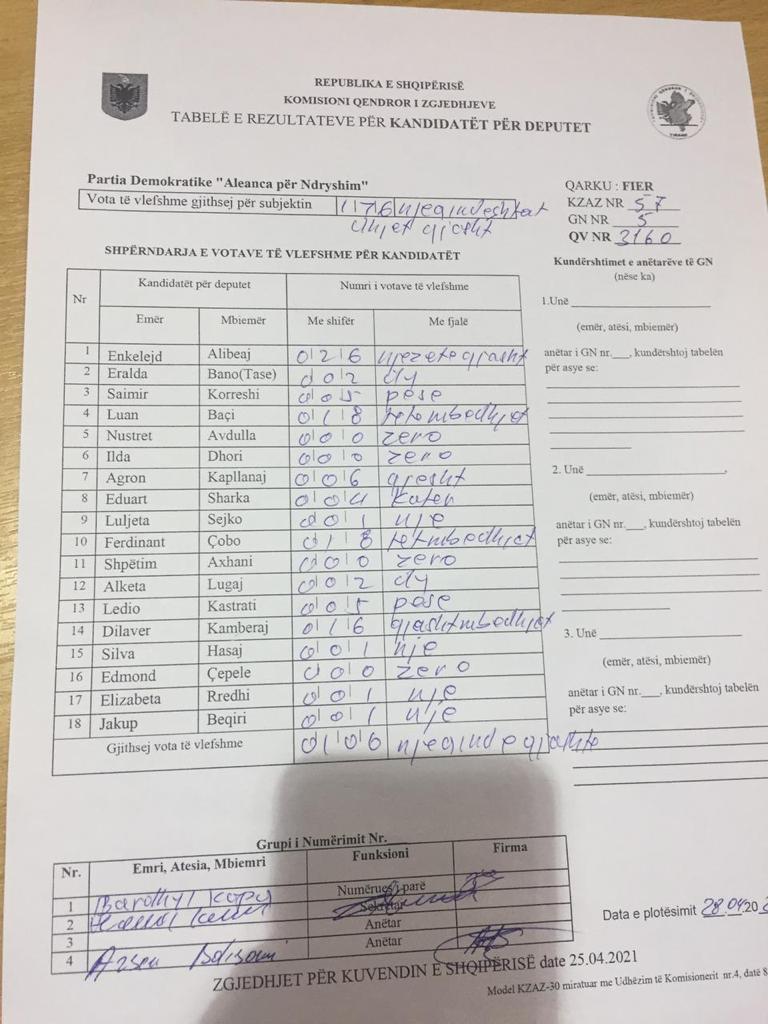 REPUBLIKA E SHQIPËRISË
KOMISIONI QENDROR I ZGJEDHJEVE
TABELË E REZULTATEVE PËR KANDIDATËT PËR DEPUTET
Partia Demokratike "Aleanca për Ndryshim"
Vota të vlefshme gjithsej për subjektin 176
QARKU : FIER
KZAZ NR 57
GN NR 5
QV NR 3160
SHPËRNDARJA E VOTAVE TË VLEFSHME PËR KANDIDATËT
Nr Kandidatët për deputet Numri i votave të vlefshme
Emër Mbiemër Me shifër Me fjalë
1 Enkelejd Alibeaj 026 njezetegjasht
2 Eralda Bano(Tase) 002 dy
3 Saimir Korreshi 005 pese
4 Luan Baçi 018 tetembedhjet
5 Nustret Avdulla 000 zero
6 Ilda Dhori 000 zero
7 Agron Kapllanaj 006 gjasht
8 Eduart Sharka 004 kater
9 Luljeta Sejko 001 nje
10 Ferdinant Çobo 018 tetmbedhjet
11 Shpëtim Axhani 000 zero
12 Alketa Lugaj 002 dy
13 Ledio Kastrati 005 pese
14 Dilaver Kamberaj 016 gjashtmbedhjet
15 Silva Hasaj 001 nje
16 Edmond Çepele 000 zero
17 Elizabeta Rredhi 001 nje
18 Jakup Beqiri 001 nje
Gjithsej vota të vlefshme 0106 njeqindegjashte
Kundërshtimet e anëtarëve të GN
(nëse ka)
1.Unë
(emër, atësi, mbiemër)
anëtar i GN nr.___, kundërshtoj tabelën
për asye se:
2. Unë
(emër, atësi, mbiemër)
anëtar i GN nr.___, kundërshtoj tabelën
për asye se:
3. Unë
(emër, atësi, mbiemër)
anëtar i GN nr.___, kundërshtoj tabelën
për asye se:
Grupi i Numërimit Nr.
Nr. Emri, Atesia, Mbiemri Funksioni Firma
1 Numërues i parë
2 Sekretar
3 Anëtar
4 Anëtar
Data e plotësimit 28.04.20
ZGJEDHJET PËR KUVENDIN E SHQIPËRISË date 25.04.2021
Model KZAZ-30 miratuar me Udhëzim të Komisionerit nr.4, datë 8